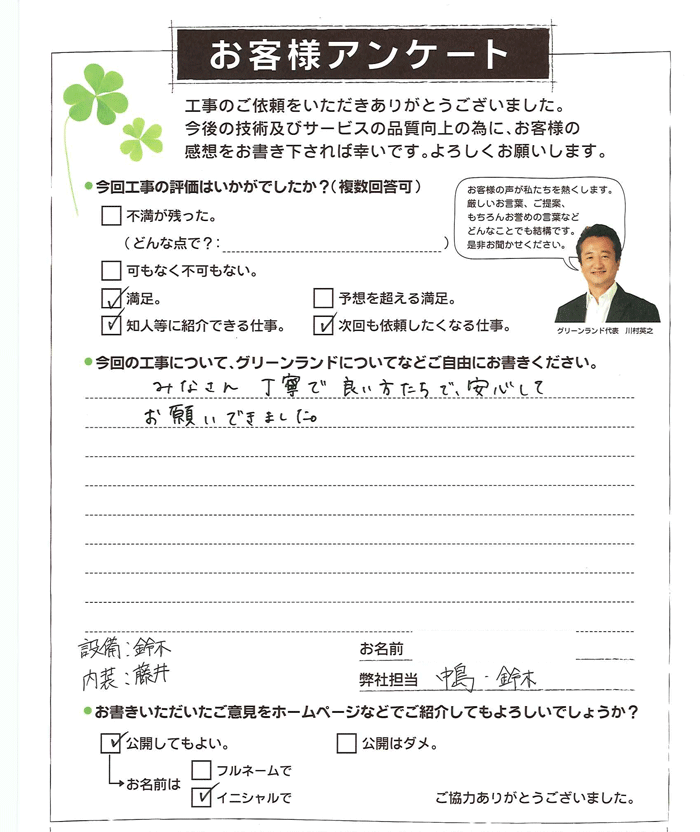 お客様アンケート
工事のご依頼をいただきありがとうございました。
今後の技術及びサービスの品質向上の為に、お客様の
感想をお書き下されば幸いです。よろしくお願いします。
今回工事の評価はいかがでしたか？（複数回答可）
不満が残った。
（どんな点で？：　）
可もなく不可もない。
満足。　予想を超える満足。
知人等に紹介できる仕事。　次回も依頼したくなる仕事。
お客様の声が私たちを熱くします。
厳しいお言葉、ご提案、
もちろんお誉めの言葉など
どんなことでも結構です。
是非お聞かせください。
グリーンランド代表　川村英之
今回の工事について、グリーンランドについてなどご自由にお書きください。
みなさん 丁寧で 良い方たちで、安心して
お願いできました。
設備：鈴木
内装：藤井
お名前
弊社担当　中島・鈴木
お書きいただいたご意見をホームページなどでご紹介してもよろしいでしょうか？
公開してもよい。　公開はダメ。
お名前は
フルネームで
イニシャルで
ご協力ありがとうございました。